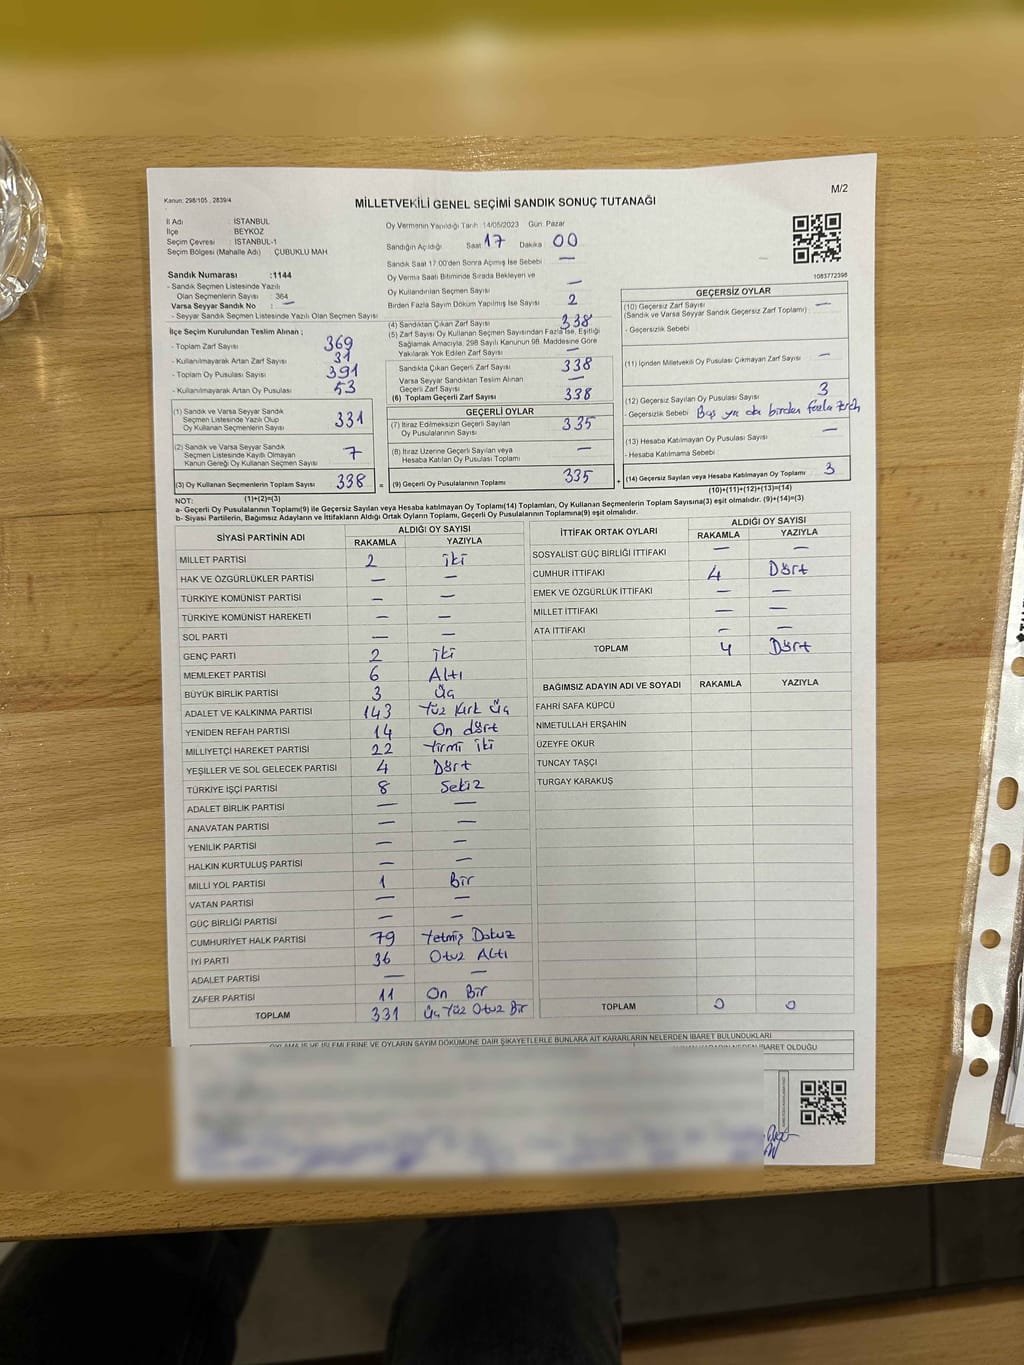 Kanun: 298/105 , 2839/4
M/2
MİLLETVEKİLİ GENEL SEÇİMİ SANDIK SONUÇ TUTANAĞI
İl Adı : İSTANBUL
İlçe : BEYKOZ
Seçim Çevresi : İSTANBUL-1
Seçim Bölgesi (Mahalle Adı) : ÇUBUKLU MAH
Sandık Numarası :1144
- Sandık Seçmen Listesinde Yazılı
Olan Seçmenlerin Sayısı : 364
Varsa Seyyar Sandık No : —
- Seyyar Sandık Seçmen Listesinde Yazılı Olan Seçmen Sayısı
İlçe Seçim Kurulundan Teslim Alınan ;
- Toplam Zarf Sayısı 369
- Kullanılmayarak Artan Zarf Sayısı 31
- Toplam Oy Pusulası 391
- Kullanılmayarak Artan Oy Pusulası 53
(1) Sandık ve Varsa Seyyar Sandık
Seçmen Listesinde Yazılı Olup
Oy Kullanan Seçmenlerin Sayısı 331
(2) Sandık ve Varsa Seyyar Sandık
Seçmen Listesinde Kayıtlı Olmayan
Kanun Gereği Oy Kullanan Seçmen Sayısı 7
(3) Oy Kullanan Seçmenlerin Toplam Sayısı 338 =
Oy Vermenin Yapıldığı Tarih 14/05/2023 Gün: Pazar
Sandığın Açıldığı Saat 17 Dakika 00
Sandık Saat 17:00'den Sonra Açılmış İse Sebebi —
Oy Verme Saati Bitiminde Sırada Bekleyen ve
Oy Kullandırılan Seçmen Sayısı —
Birden Fazla Sayım Döküm Yapılmış İse Sayısı 2
(4) Sandıktan Çıkan Zarf Sayısı 338
(5) Zarf Sayısı Oy Kullanan Seçmen Sayısından Fazla İse, Eşitliği
Sağlamak Amacıyla, 298 Sayılı Kanunun 98. Maddesine Göre
Yakılarak Yok Edilen Zarf Sayısı —
Sandıkta Çıkan Geçerli Zarf Sayısı 338
Varsa Seyyar Sandıktan Teslim Alınan
Geçerli Zarf Sayısı —
(6) Toplam Geçerli Zarf Sayısı 338
GEÇERLİ OYLAR
(7) İtiraz Edilmeksizin Geçerli Sayılan
Oy Pusulalarının Sayısı 335
(8) İtiraz Üzerine Geçerli Sayılan veya
Hesaba Katılan Oy Pusulası Toplamı —
(9) Geçerli Oy Pusulalarının Toplamı 335 +
1083772398
GEÇERSİZ OYLAR
(10) Geçersiz Zarf Sayısı —
(Sandık ve Varsa Seyyar Sandık Geçersiz Zarf Toplamı)
- Geçersizlik Sebebi
(11) İçinden Milletvekili Oy Pusulası Çıkmayan Zarf Sayısı —
(12) Geçersiz Sayılan Oy Pusulası Sayısı 3
- Geçersizlik Sebebi Boş ya da birden fazla
(13) Hesaba Katılmayan Oy Pusulası Sayısı —
- Hesaba Katılmama Sebebi
(14) Geçersiz Sayılan veya Hesaba Katılmayan Oy Toplamı 3
(10)+(11)+(12)+(13)=(14)
NOT: (1)+(2)=(3)
a- Geçerli Oy Pusulalarının Toplamı(9) ile Geçersiz Sayılan veya Hesaba katılmayan Oy Toplamı(14) Toplamları, Oy Kullanan Seçmenlerin Toplam Sayısına(3) eşit olmalıdır. (9)+(14)=(3)
b- Siyasi Partilerin, Bağımsız Adayların ve İttifakların Aldığı Ortak Oyların Toplamı, Geçerli Oy Pusulalarının Toplamına(9) eşit olmalıdır.
SİYASİ PARTİNİN ADI ALDIĞI OY SAYISI
RAKAMLA YAZIYLA
MİLLET PARTİSİ 2 iki
HAK VE ÖZGÜRLÜKLER PARTİSİ — —
TÜRKİYE KOMÜNİST PARTİSİ — —
TÜRKİYE KOMÜNİST HAREKETİ — —
SOL PARTİ — —
GENÇ PARTİ 2 iki
MEMLEKET PARTİSİ 6 Altı
BÜYÜK BİRLİK PARTİSİ 3 Üç
ADALET VE KALKINMA PARTİSİ 143 Yüz Kırk Üç
YENİDEN REFAH PARTİSİ 14 On dört
MİLLİYETÇİ HAREKET PARTİSİ 22 Yirmi iki
YEŞİLLER VE SOL GELECEK PARTİSİ 4 Dört
TÜRKİYE İŞÇİ PARTİSİ 8 Sekiz
ADALET BİRLİK PARTİSİ — —
ANAVATAN PARTİSİ — —
YENİLİK PARTİSİ — —
HALKIN KURTULUŞ PARTİSİ — —
MİLLİ YOL PARTİSİ 1 Bir
VATAN PARTİSİ — —
GÜÇ BİRLİĞİ PARTİSİ — —
CUMHURİYET HALK PARTİSİ 79 Yetmiş Dokuz
İYİ PARTİ 36 Otuz Altı
ADALET PARTİSİ — —
ZAFER PARTİSİ 11 On Bir
TOPLAM 331 Üç Yüz Otuz Bir
İTTİFAK ORTAK OYLARI ALDIĞI OY SAYISI
RAKAMLA YAZIYLA
SOSYALİST GÜÇ BİRLİĞİ İTTİFAKI — —
CUMHUR İTTİFAKI 4 Dört
EMEK VE ÖZGÜRLÜK İTTİFAKI — —
MİLLET İTTİFAKI — —
ATA İTTİFAKI — —
TOPLAM 4 Dört
BAĞIMSIZ ADAYIN ADI VE SOYADI RAKAMLA YAZIYLA
FAHRİ SAFA KÜPCÜ
NİMETULLAH ERŞAHİN
ÜZEYFE OKUR
TUNCAY TAŞÇI
TURGAY KARAKUŞ
TOPLAM 0 0
OYLAMA İŞ VE İŞLEMLERİNE VE OYLARIN SAYIM DÖKÜMÜNE DAİR ŞİKAYETLERLE BUNLARA AİT KARARLARIN NELERDEN İBARET BULUNDUKLARI
İBARET OLDUĞU